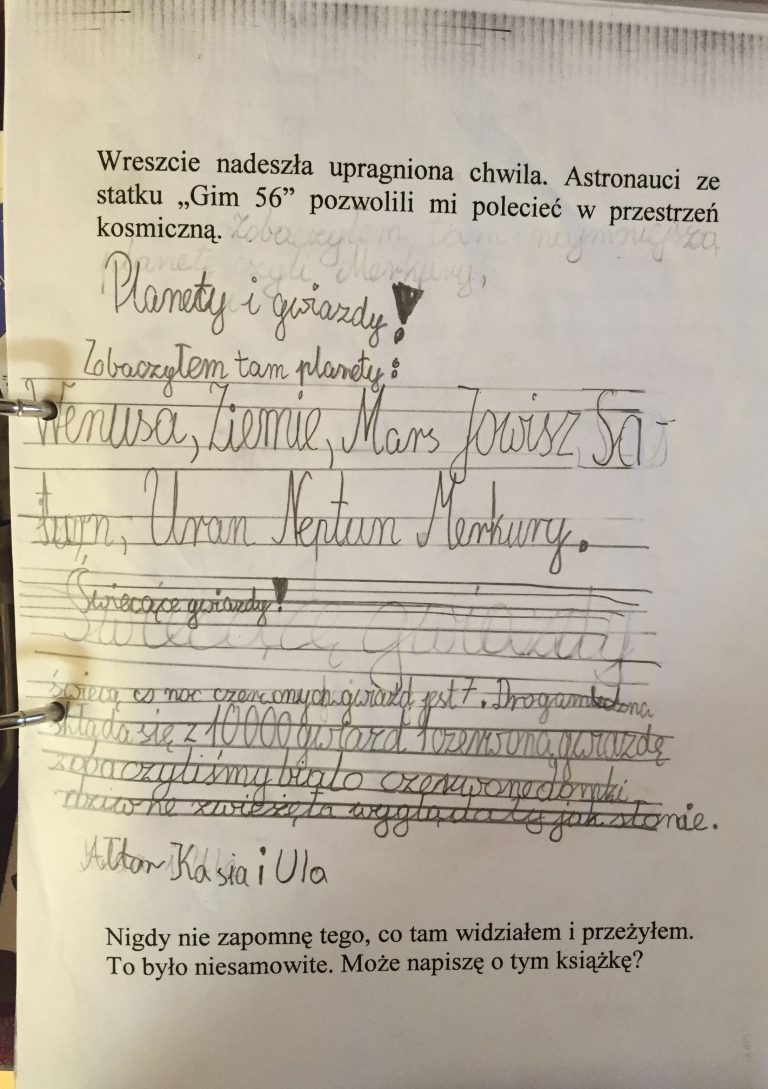 Wreszcie nadeszła upragniona chwila. Astronauci ze
statku „Gim 56” pozwolili mi polecieć w przestrzeń
kosmiczną. Zobaczyłem tam najmniejszą
planetę czyli Merkury,
Planety i gwiazdy!
Zobaczyłem tam planety:
Wenusa, Ziemie, Mars Jowisz Sa-
turn, Uran Neptun Merkury.
Świecące gwiazdy!
Świecące gwiazdy
świecą co noc czerwonych gwiazd jest 7. Droga mleczna
składa się z 10000 gwiazd 1 czerwoną gwiazdę
zobaczyliśmy biało czerwone domki
dziwne zwierzęta wyglądały jak słonie.
Kasia i Ula
Nigdy nie zapomnę tego, co tam widziałem i przeżyłem.
To było niesamowite. Może napiszę o tym książkę?